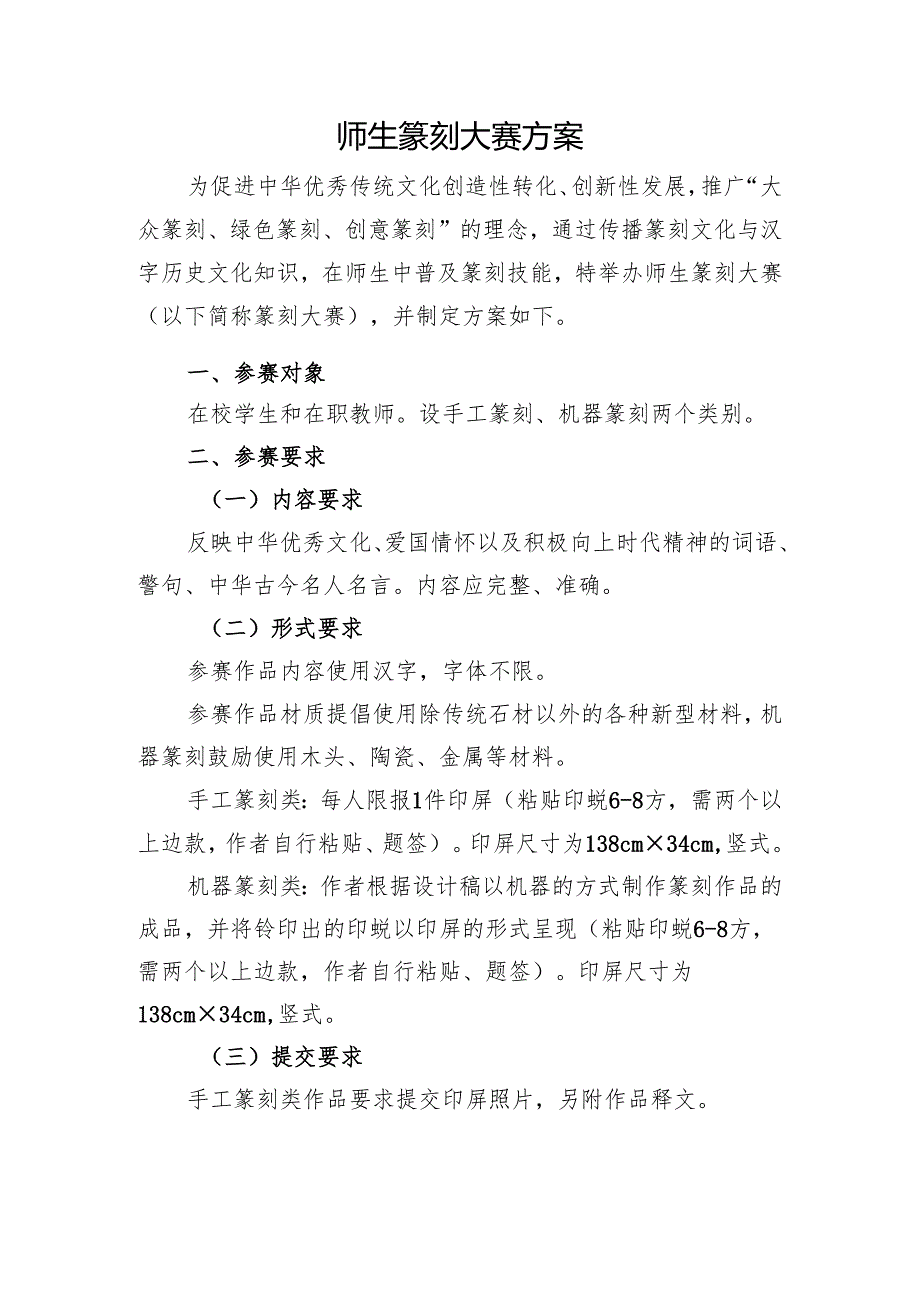 师生篆刻大赛方案
为促进中华优秀传统文化创造性转化、创新性发展,推广“大
众篆刻、绿色篆刻、创意篆刻”的理念，通过传播篆刻文化与汉
字历史文化知识，在师生中普及篆刻技能，特举办师生篆刻大赛
（以下简称篆刻大赛），并制定方案如下。
一、参赛对象
在校学生和在职教师。设手工篆刻、机器篆刻两个类别。
二、参赛要求
（一）内容要求
反映中华优秀文化、爱国情怀以及积极向上时代精神的词语、
警句、中华古今名人名言。内容应完整、准确。
（二）形式要求
参赛作品内容使用汉字，字体不限。
参赛作品材质提倡使用除传统石材以外的各种新型材料,机
器篆刻鼓励使用木头、陶瓷、金属等材料。
手工篆刻类：每人限报1件印屏（粘贴印蜕6-8方，需两个以
上边款,作者自行粘贴、题签）。印屏尺寸为138cm×34cm,竖式。
机器篆刻类：作者根据设计稿以机器的方式制作篆刻作品的
成品，并将铃印出的印蜕以印屏的形式呈现（粘贴印蜕6-8方，
需两个以上边款，作者自行粘贴、题签）。印屏尺寸为
138cm×34cm,竖式。
（三）提交要求
手工篆刻类作品要求提交印屏照片，另附作品释文。